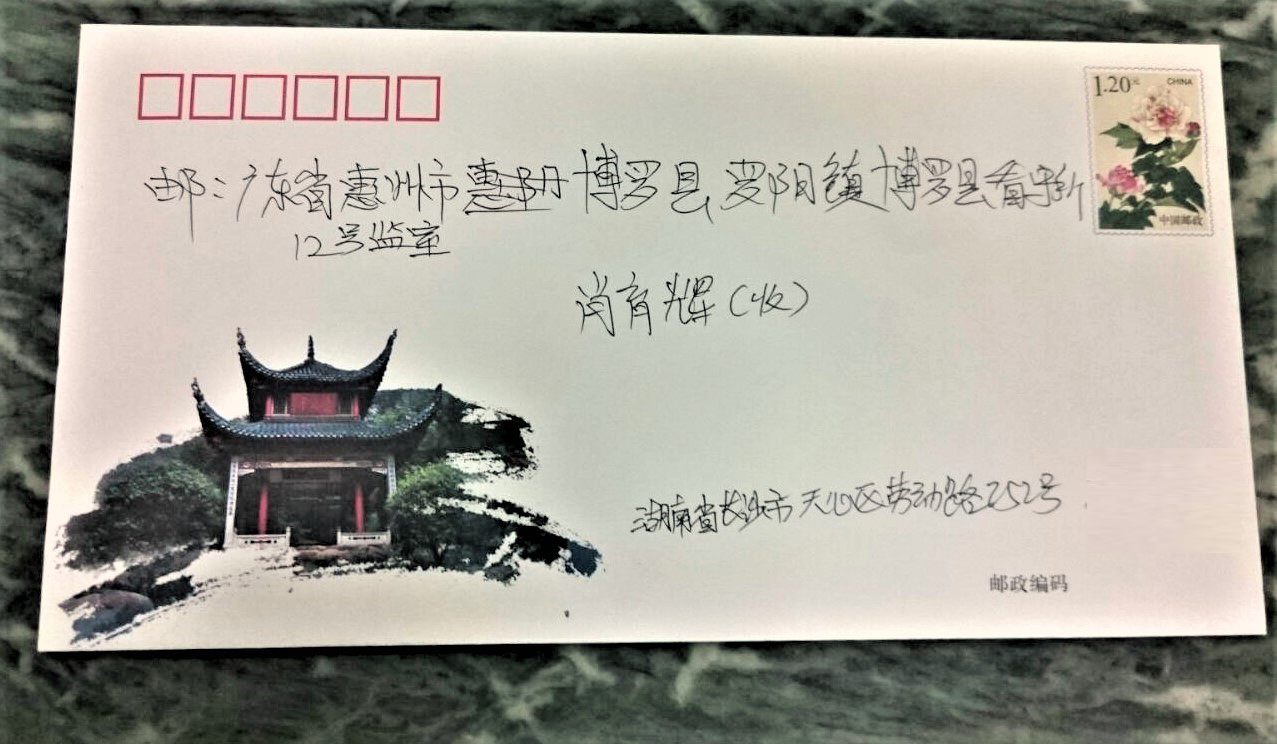 1.20元 CHINA
中国邮政
邮：广东省惠州市 博罗县 罗阳镇博罗县看守所
12号监室
肖育辉（收）
湖南省长沙市天心区劳动路252号
邮政编码